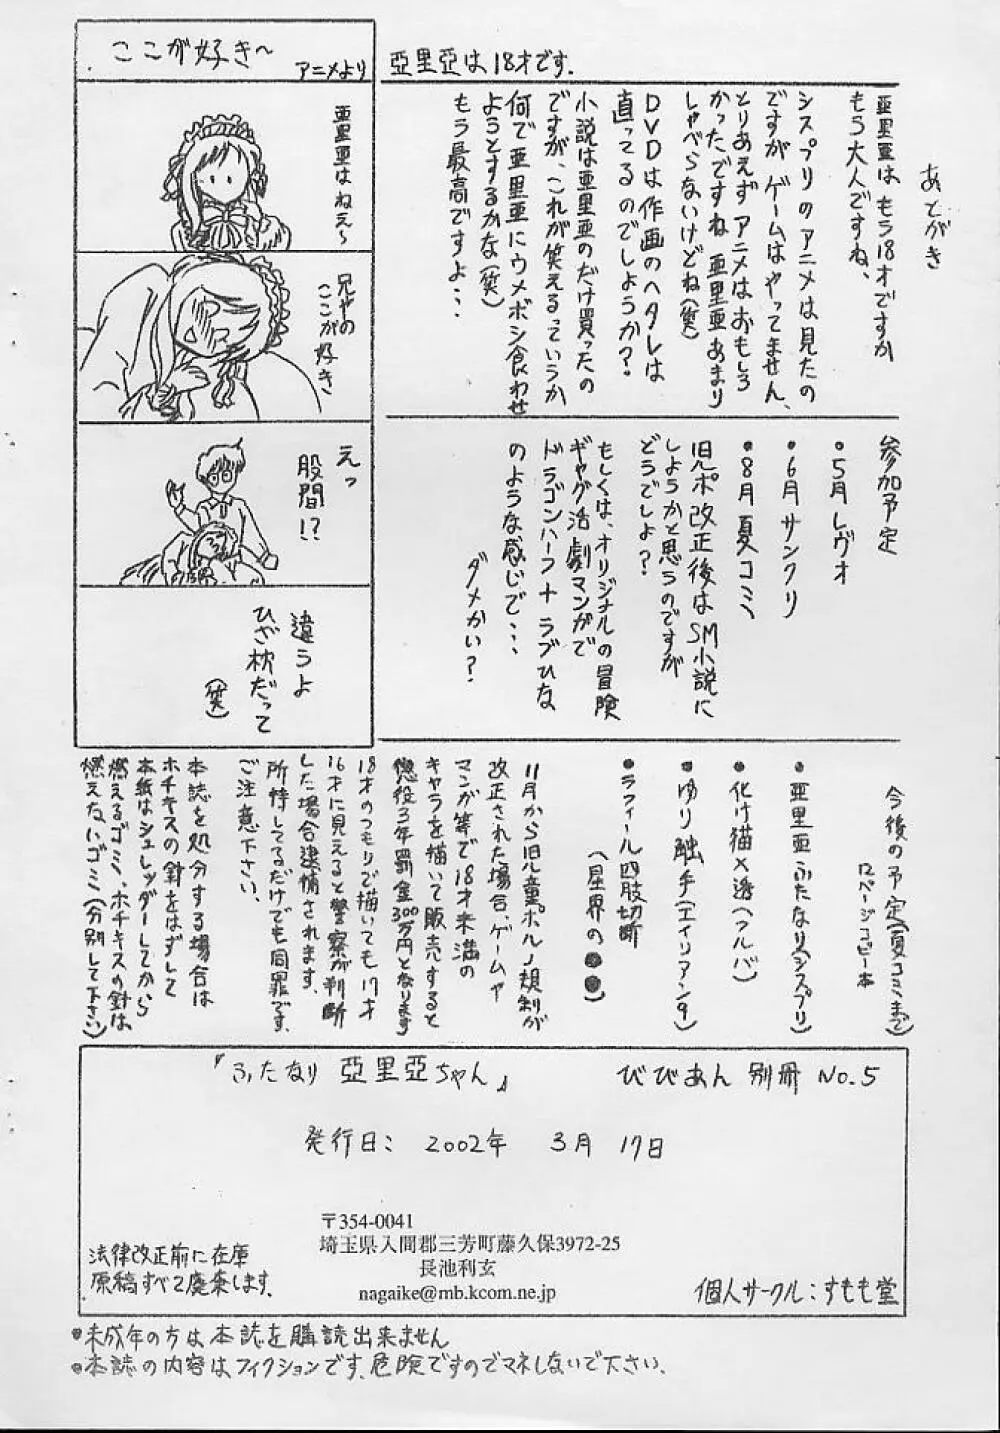 ここが好き～
アニメより
亜里亜はねえ～
兄やの
ここが好き
えっ
股間!?
違うよ
ひざ枕だって
(笑)
亞里亞は18才です.
あとがき
亜里亜はもう18才ですか
もう大人ですね、
シスプリのアニメは見たの
ですが ゲームはやってません、
とりあえず アニメはおもしろ
かったですね 亜里亜あまり
しゃべらないけどね(笑)
DVDは作画のヘタレは
直ってるのでしょうか?
小説は亜里亜のだけ買ったの
ですが、これが笑えるっていうか
何で亜里亜にウメボシ食わせ
ようとするかな(笑)
もう最高ですよ…
参加予定
•5月レヴォ
•6月サンクリ
•8月夏コミ
旧ポ改正後はSM小説に
しようかと思うのですが
どうでしょ?
もしくは、オリジナルの冒険
ギャグ活劇マンガで
ドラゴンハーフ+ラブひな
のような感じで…
ダメかい?
今後の予定(夏コミまで)
12ページコピー本
•亜里亜ふたなり(シスプリ)
•化け猫×透(フルバ)
•ゆり触手(エイリアン9)
•ラフィール四肢切断
(星界の●●)
11月から旧児童ポルノ規制が
改正された場合、ゲームや
マンガ等で18才未満の
キャラを描いて販売すると
懲役3年罰金300万円となります
18才のつもりで描いても17才
16才に見えると警察が判断
した場合逮捕されます.
所持してるだけでも同罪です.
ご注意下さい.
本誌を処分する場合は
ホチキスの針をはずして
本紙はシュレッダーしてから
燃えるゴミ、ホチキスの針は
燃えないゴミ(分別して下さい)
『ふたなり 亞里亞ちゃん』
びびあん 別冊 No.5
発行日: 2002年 3月 17日
〒354-0041
埼玉県入間郡三芳町藤久保3972-25
長池利玄
nagaike@mb.kcom.ne.jp
法律改正前に在庫
原稿すべて廃棄します.
個人サークル:すもも堂
•未成年の方は本誌を購読出来ません
•本誌の内容はフィクションです.危険ですのでマネしないで下さい.